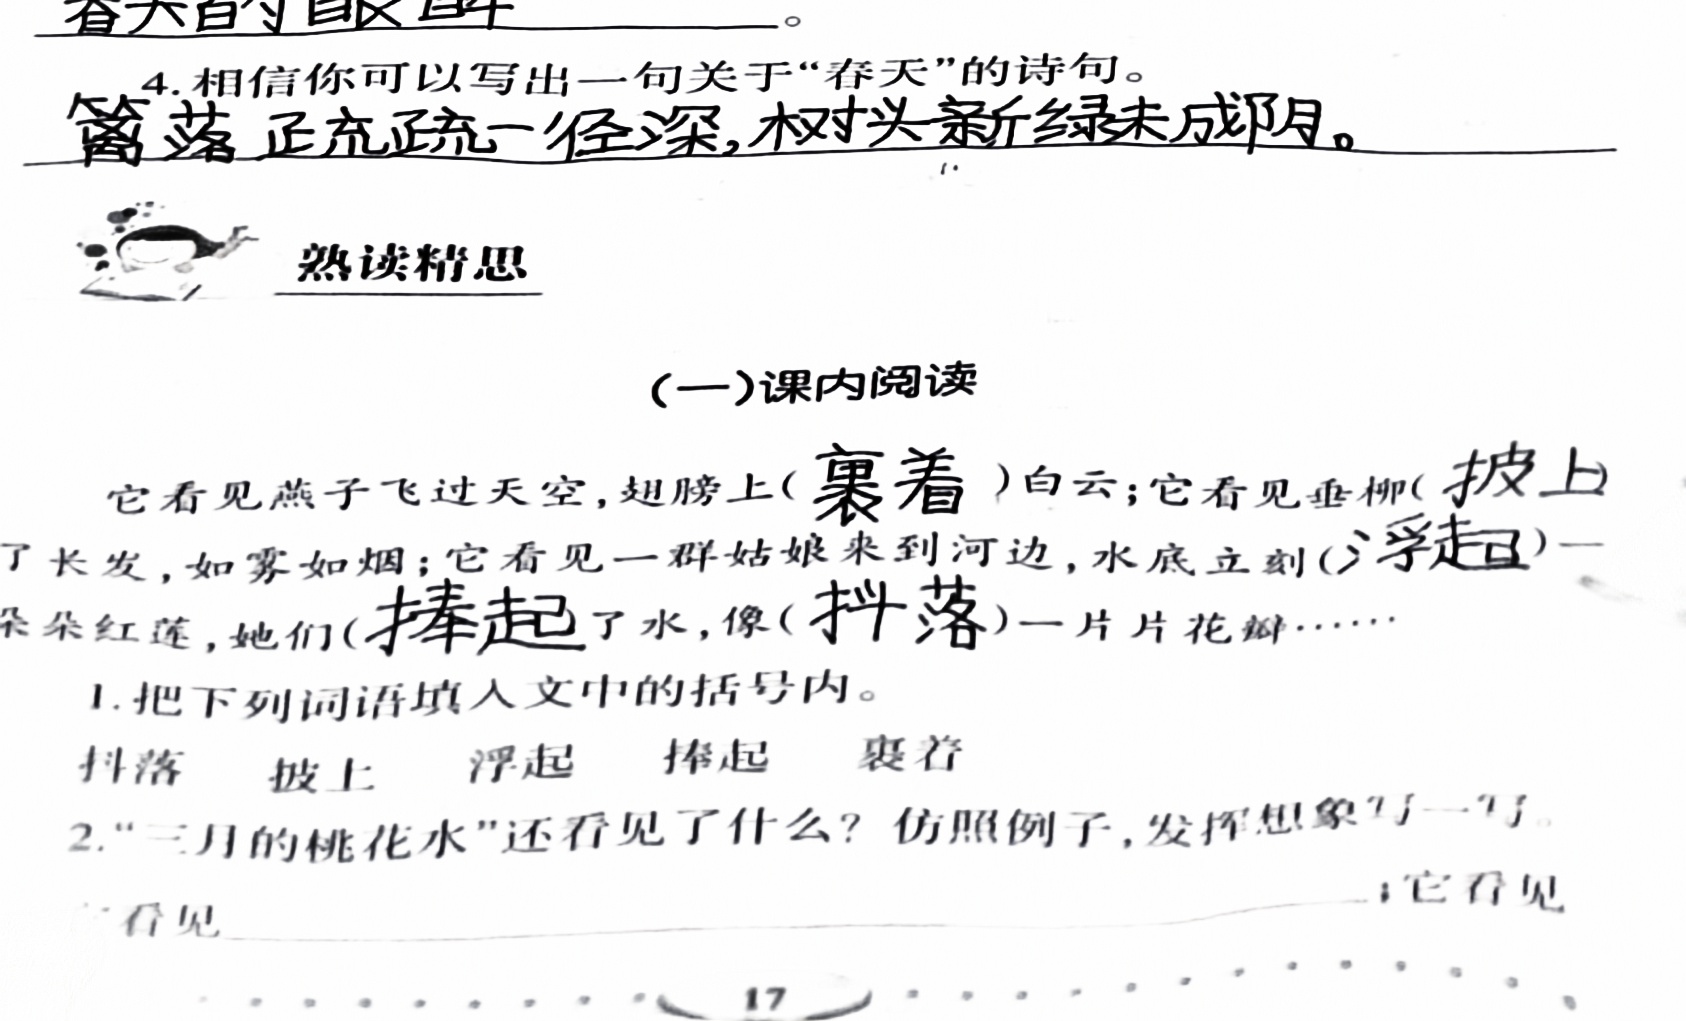 春天的
4.相信你可以写出一句关于“春天”的诗句。
篱落疏疏一径深,树头新绿未成阴。
熟读精思
(一)课内阅读
它看见燕子飞过天空,翅膀上(裹着)白云;它看见垂柳(披上)
了长发,如雾如烟;它看见一群姑娘来到河边,水底立刻(浮起)一
朵朵红莲,她们(捧起)了水,像(抖落)一片片花瓣……
1.把下列词语填入文中的括号内。
抖落 披上 浮起 捧起 裹着
2.“三月的桃花水”还看见了什么?仿照例子,发挥想象写一写。
看见;它看见
17